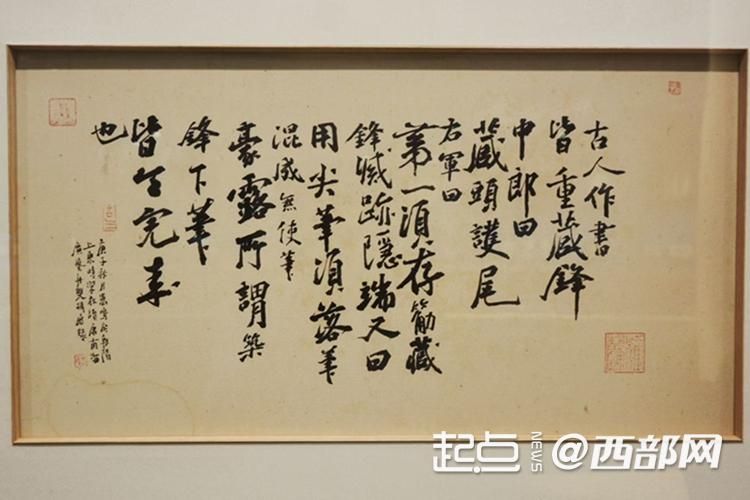 古人作書
皆重藏鋒
中郎曰
藏頭護尾
右軍曰
第一須存筋藏
鋒滅跡隱端又曰
用尖筆須落筆
混成無使筆
豪露所謂築
鋒下筆
皆令完
也
起点 NEWS @西部网